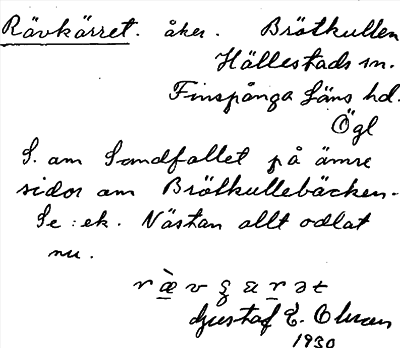 Rävkärret. åker. Brötkullen
Hällestads sn.
Finspånga Läns hd.
Ögl
S. om Sandfallet på ömse
sidor om Brötkullebäcken.
Se: ek. Nästan allt odlat
nu.
Gustaf E. Olsson
1930